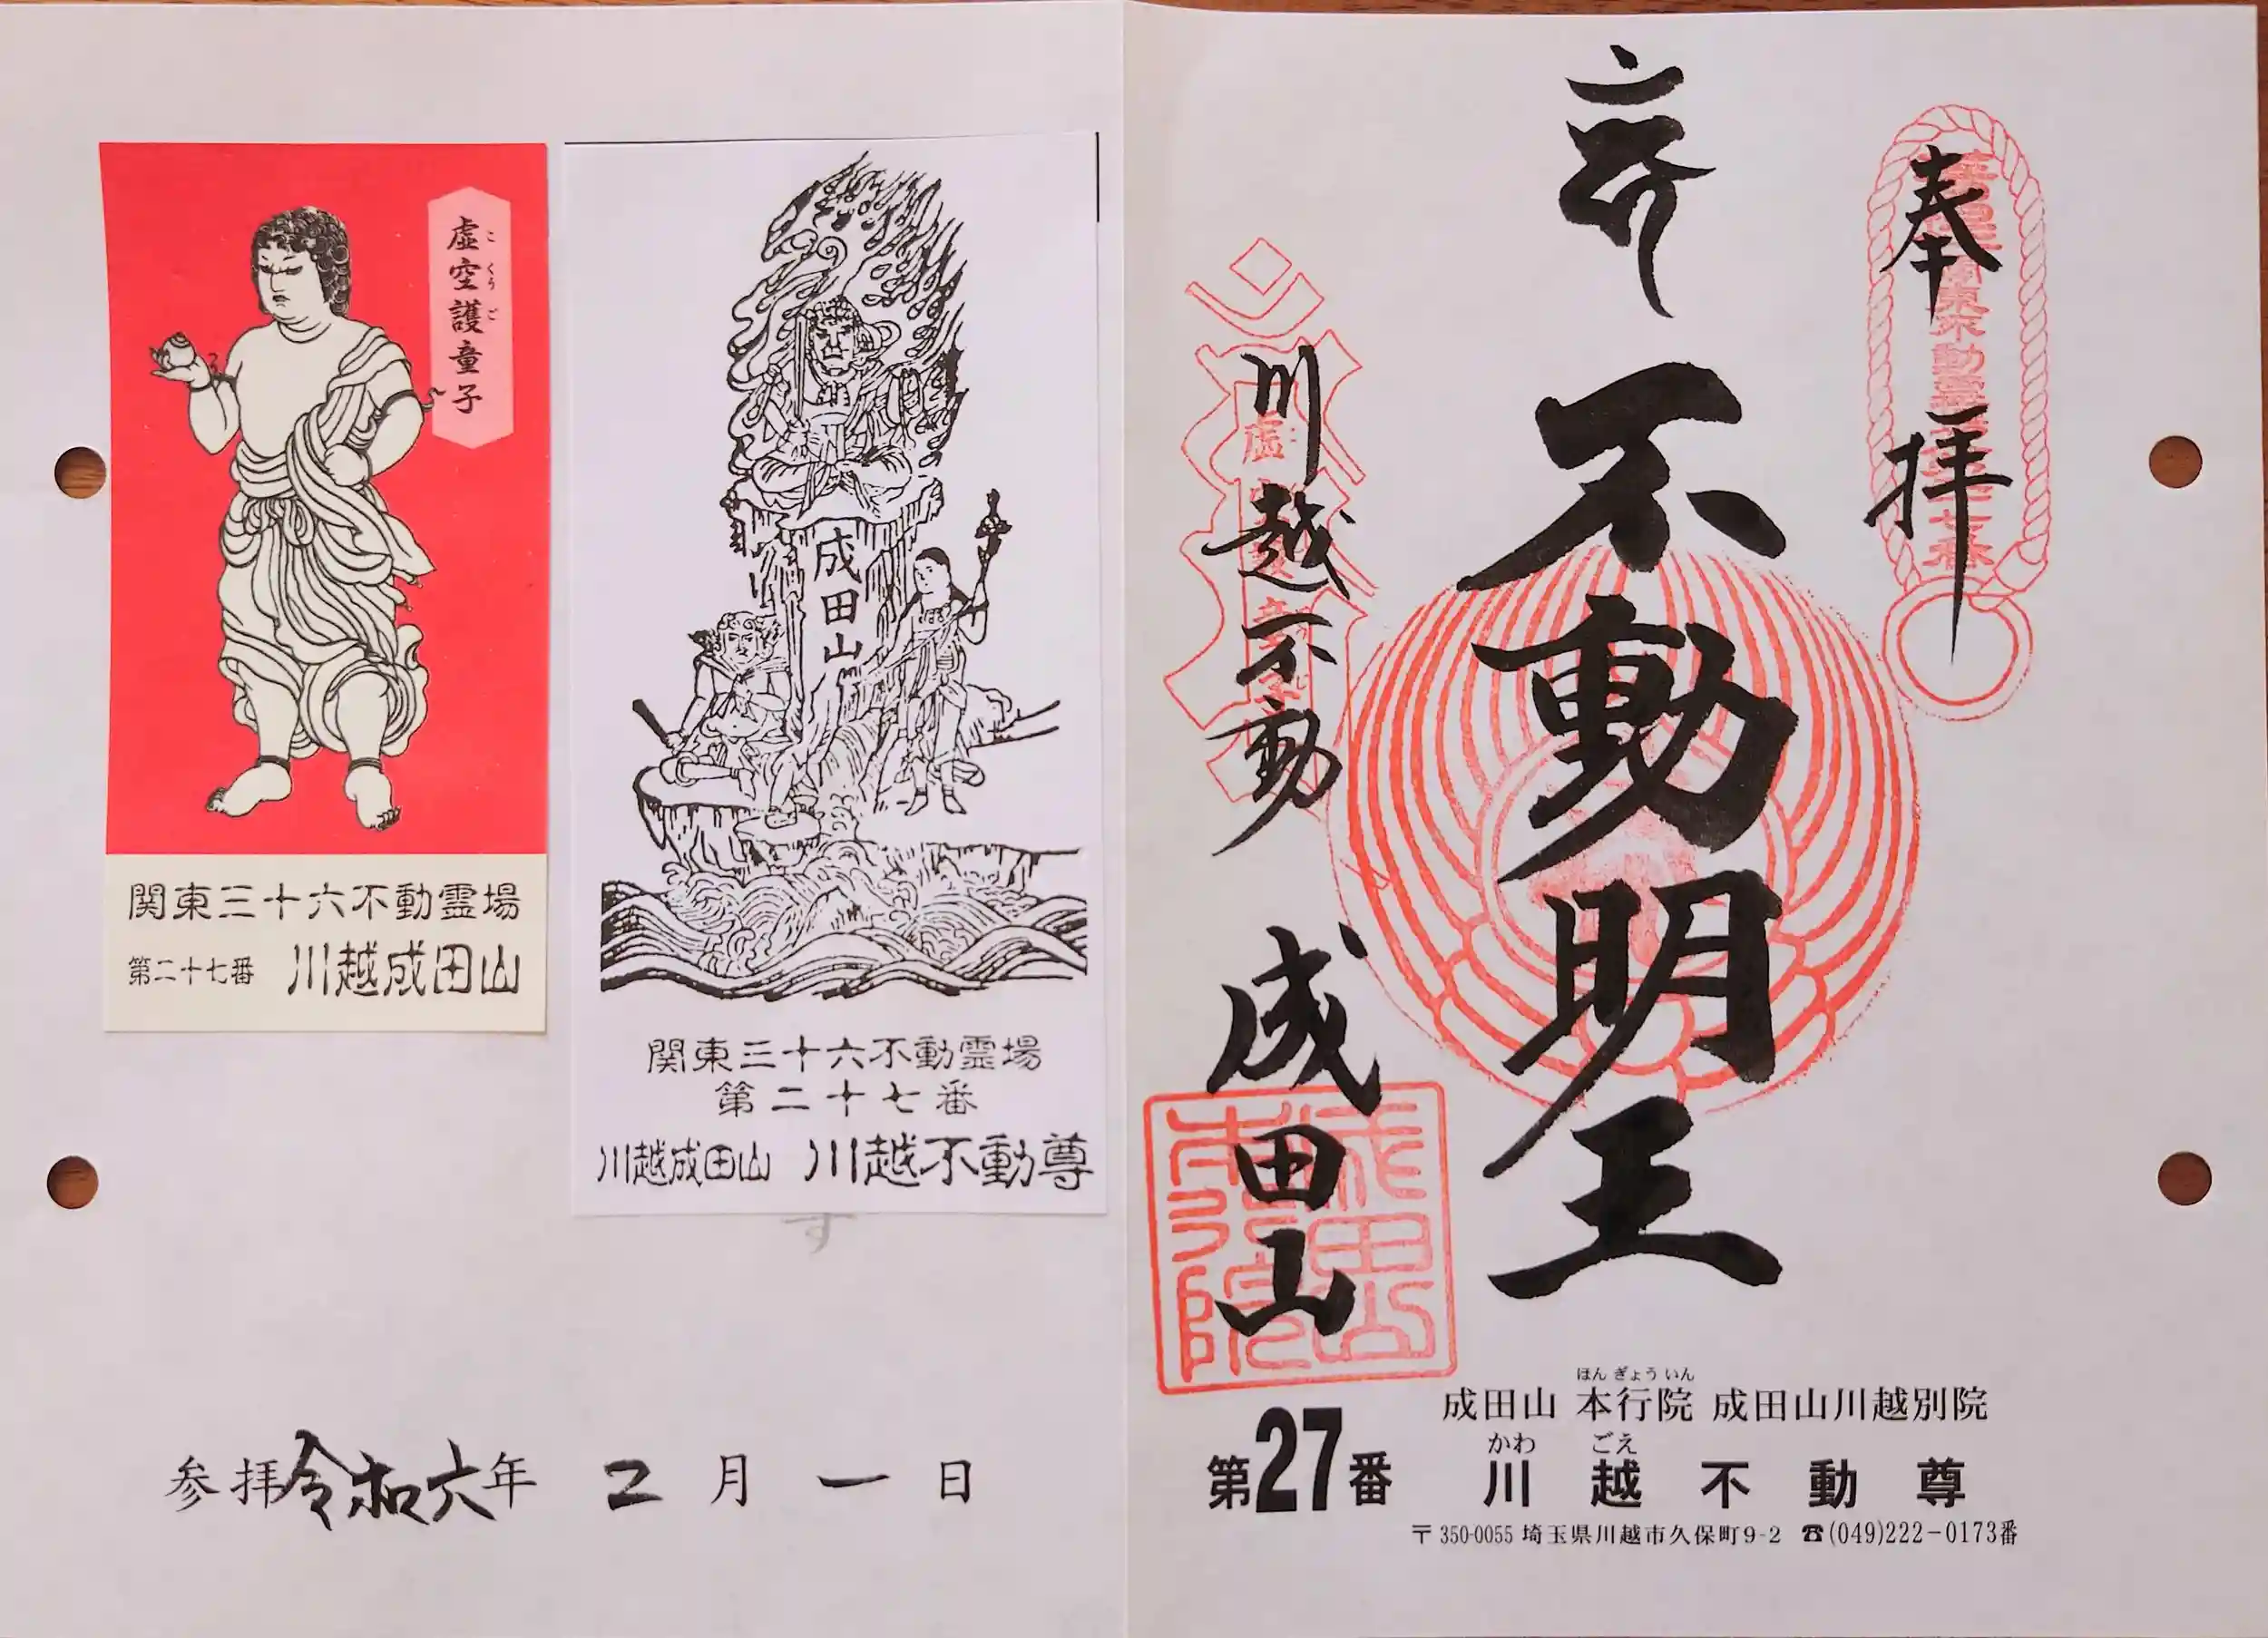 奉拝
不動明王
川越不動
成田山
成田山
本行院
ほんぎょういん
成田山 本行院 成田山川越別院
かわ ごえ
第27番 川越不動尊
〒350-0055 埼玉県川越市久保町9-2 ☎(049)222-0173番
成田山
関東三十六不動霊場
第二十七番
川越成田山 川越不動尊
こくうご
虚空護童子
関東三十六不動霊場
第二十七番 川越成田山
す
参拝令和六年 二月一日